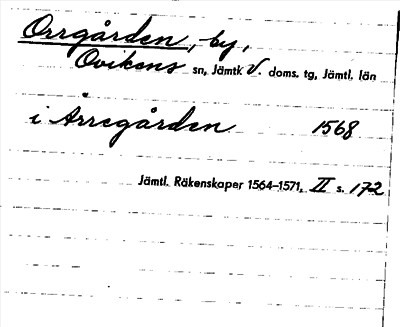 Orrgården, by,
Ovikens sn, Jämtl V. doms. tg, Jämtl. län
i Årregården 1568
Jämtl. Räkenskaper 1564–1571, II s. 172